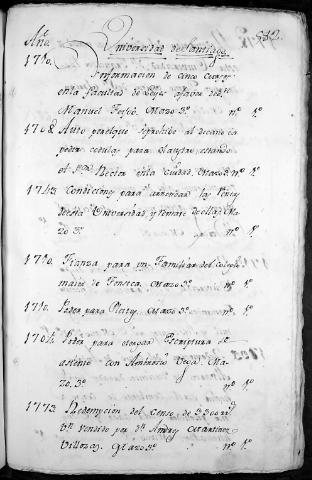 512.
Año. Universidad de Santiago
1710. Informacion de cinco cursos
en la facultad de Leyes afavor de Dn.
Manuel Mazo 3º nº 1º
1708. Auto para que prohibe al decano la
poder cedulas para claustro estando
el Sr. Rector en la Ciudad. Mazo 3º nº 1º
1743 Condiciones para arrendar las
de esta Universidad y remate de ellas. Ma
zo 3º. nº 1º
1710. Fianza para un Familiar del colegio
maior de Fonseca. Mazo 3º nº 1º
1710. Poder para Pleitos. Mazo 3º nº 1º
1704. Poder para otorgar Escriptura de
asiento con Ambrosio Vega. Ma
zo. 3º nº 1º
1773 Redempcion del censo de 3300 rs
vn vendido por Dn. Andres Martinez
Villozas. Mazo 3º nº 1º